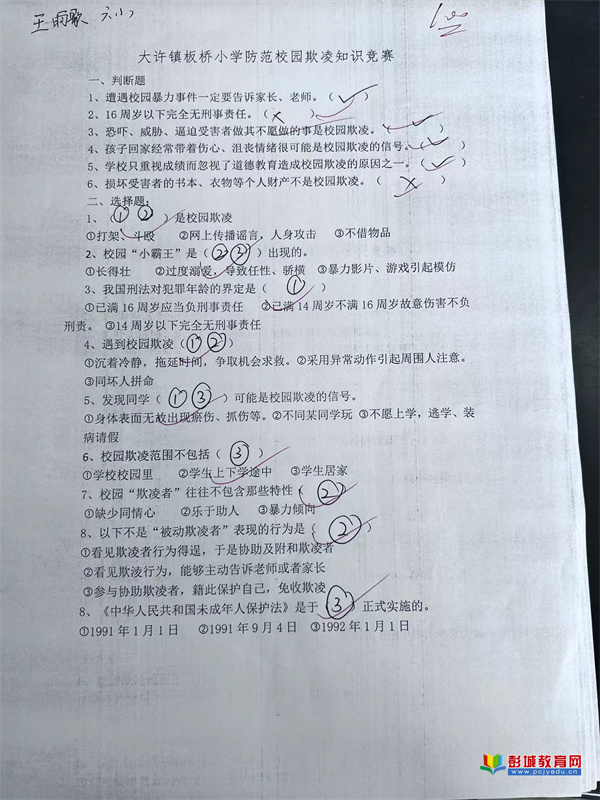 王雨歌 六小
100
大许镇板桥小学防范校园欺凌知识竞赛
一、判断题
1、遭遇校园暴力事件一定要告诉家长、老师。（✓）
2、16 周岁以下完全无刑事责任。（×）
3、恐吓、威胁、逼迫受害者做其不愿做的事是校园欺凌。（✓）
4、孩子回家经常带着伤心、沮丧情绪很可能是校园欺凌的信号。（✓）
5、学校只重视成绩而忽视了道德教育造成校园欺凌的原因之一。（✓）
6、损坏受害者的书本、衣物等个人财产不是校园欺凌。（×）
二、选择题：
1、（① ②）是校园欺凌
①打架、斗殴 ②网上传播谣言，人身攻击 ③不借物品
2、校园“小霸王”是（②③）出现的。
①长得壮 ②过度溺爱，导致任性、骄横 ③暴力影片、游戏引起模仿
3、我国刑法对犯罪年龄的界定是（①）
①已满 16 周岁应当负刑事责任 ②已满 14 周岁不满 16 周岁故意伤害不负
刑责。 ③14 周岁以下完全无刑事责任
4、遇到校园欺凌（①②）
①沉着冷静，拖延时间，争取机会求救。②采用异常动作引起周围人注意。
③同坏人拼命
5、发现同学（①③）可能是校园欺凌的信号。
①身体表面无故出现瘀伤、抓伤等。②不同某同学玩 ③不愿上学，逃学、装
病请假
6、校园欺凌范围不包括（③）
①学校校园里 ②学生上下学途中 ③学生居家
7、校园“欺凌者”往往不包含那些特性（②）
①缺少同情心 ②乐于助人 ③暴力倾向
8、以下不是“被动欺凌者”表现的行为是（②）
①看见欺凌者行为得逞，于是协助及附和欺凌者
②看见欺凌行为，能够主动告诉老师或者家长
③参与协助欺凌者，籍此保护自己，免收欺凌
8、《中华人民共和国未成年人保护法》是于（③）正式实施的。
①1991 年 1 月 1 日 ②1991 年 9 月 4 日 ③1992 年 1 月 1 日
彭城教育网
www.pcjyedu.com